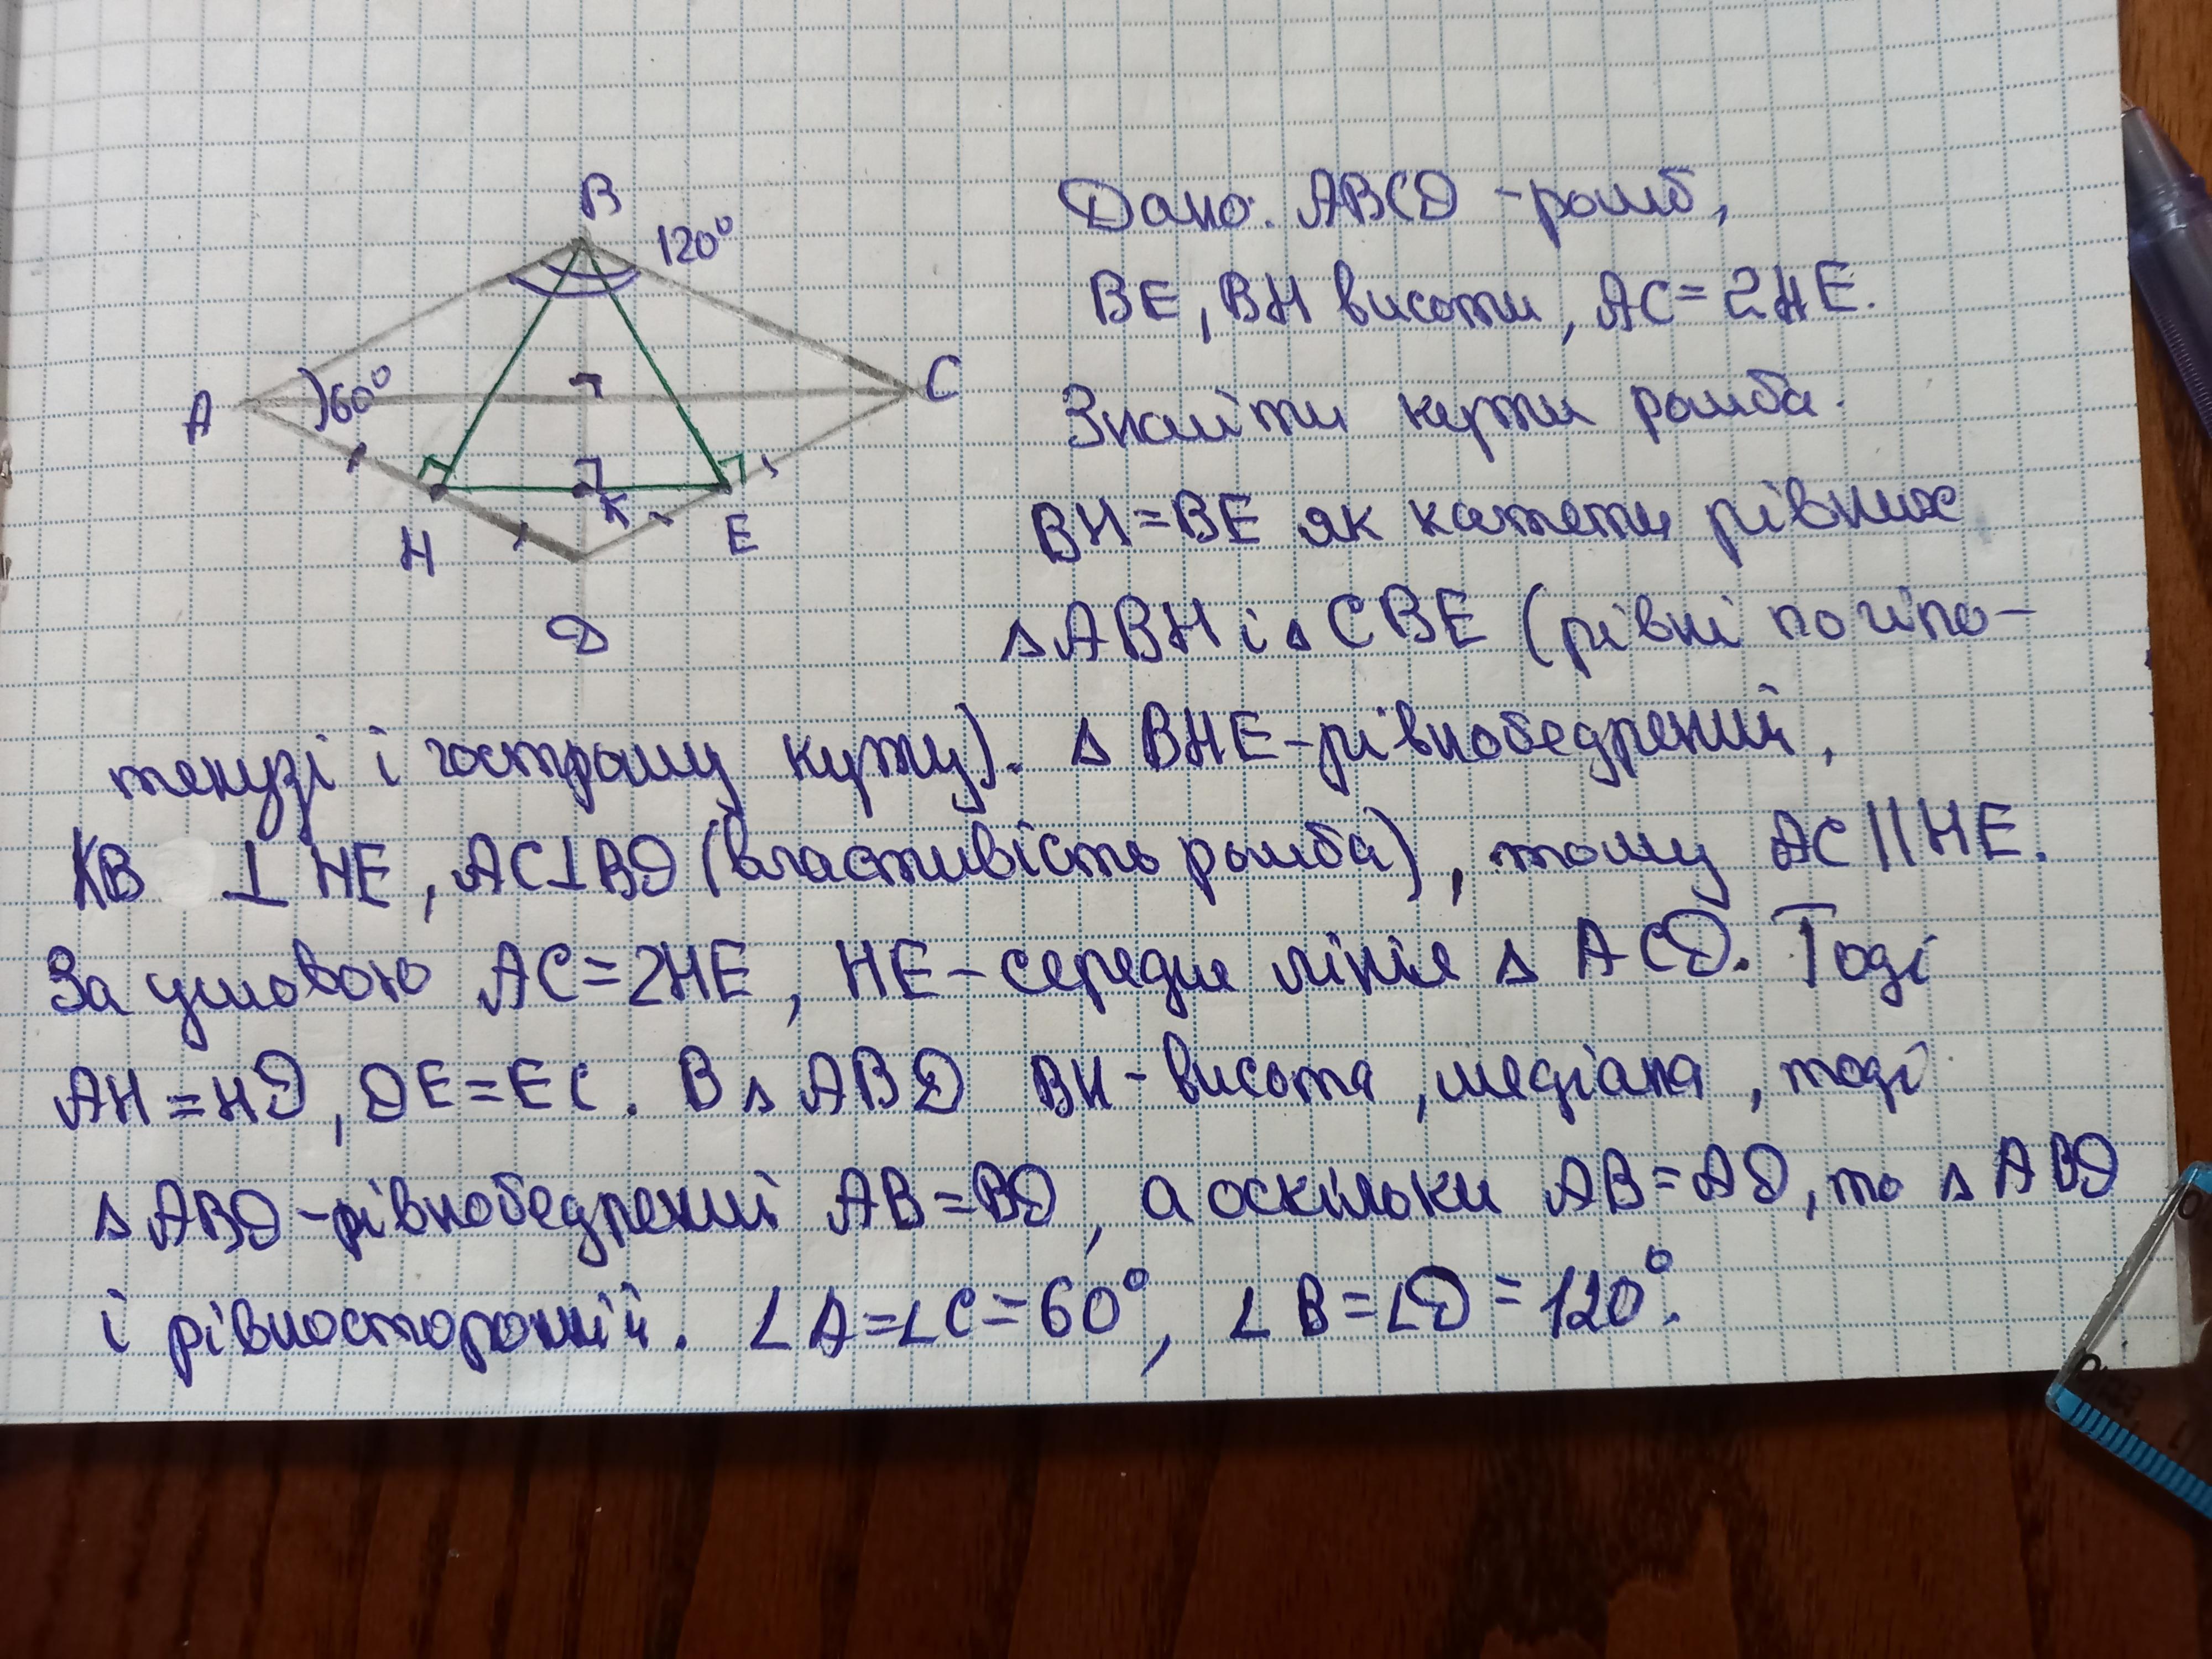 B
120°
A
60°
C
H
K
E
D
Дано: ABCD - ромб,
BE, BH висоти, AC = 2HE.
Знайти кути ромба.
BH = BE як катети рівних
△ABH і △CBE (рівні по гіпо-
тенузі і гострому куту). △ BHE - рівнобедрений,
KB ⊥ HE, AC⊥BD (властивість ромба), тому AC || HE.
За умовою AC = 2HE, HE - середня лінія △ ACD. Тоді
AH = HD, DE = EC. В △ ABD BH - висота, медіана, тоді
△ ABD - рівнобедрений AB = BD, а оскільки AB = AD, то △ ABD
і рівносторонній. ∠A = ∠C = 60°, ∠B = ∠D = 120°.